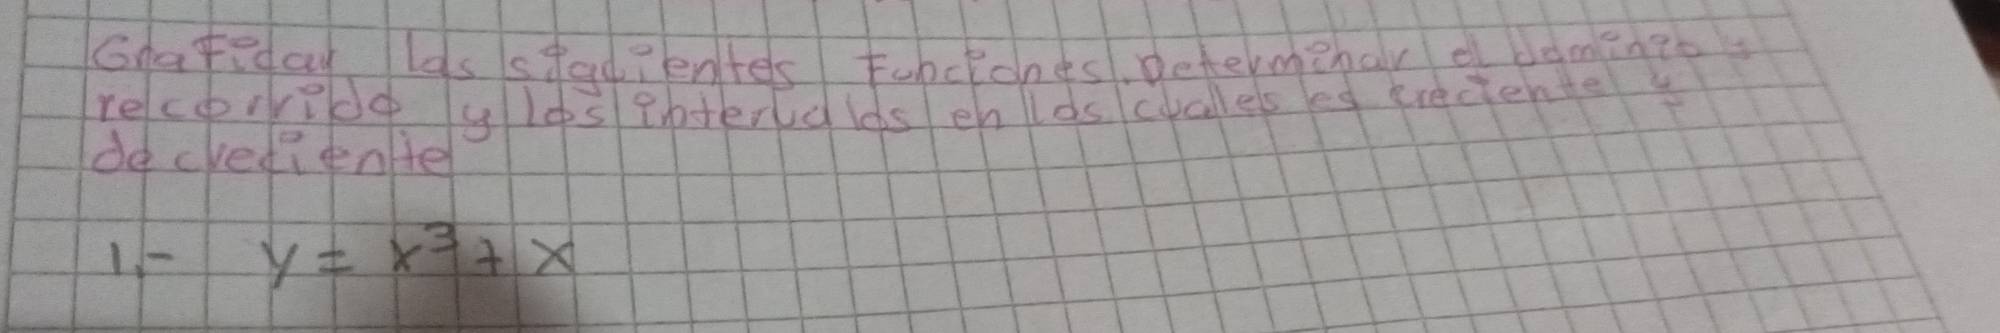 Graficar las siguientes Funciones. Determinar el dominio y
recorrido y los intervalos en los cuales es creciente y
decreciente
1.- y = x³ + x